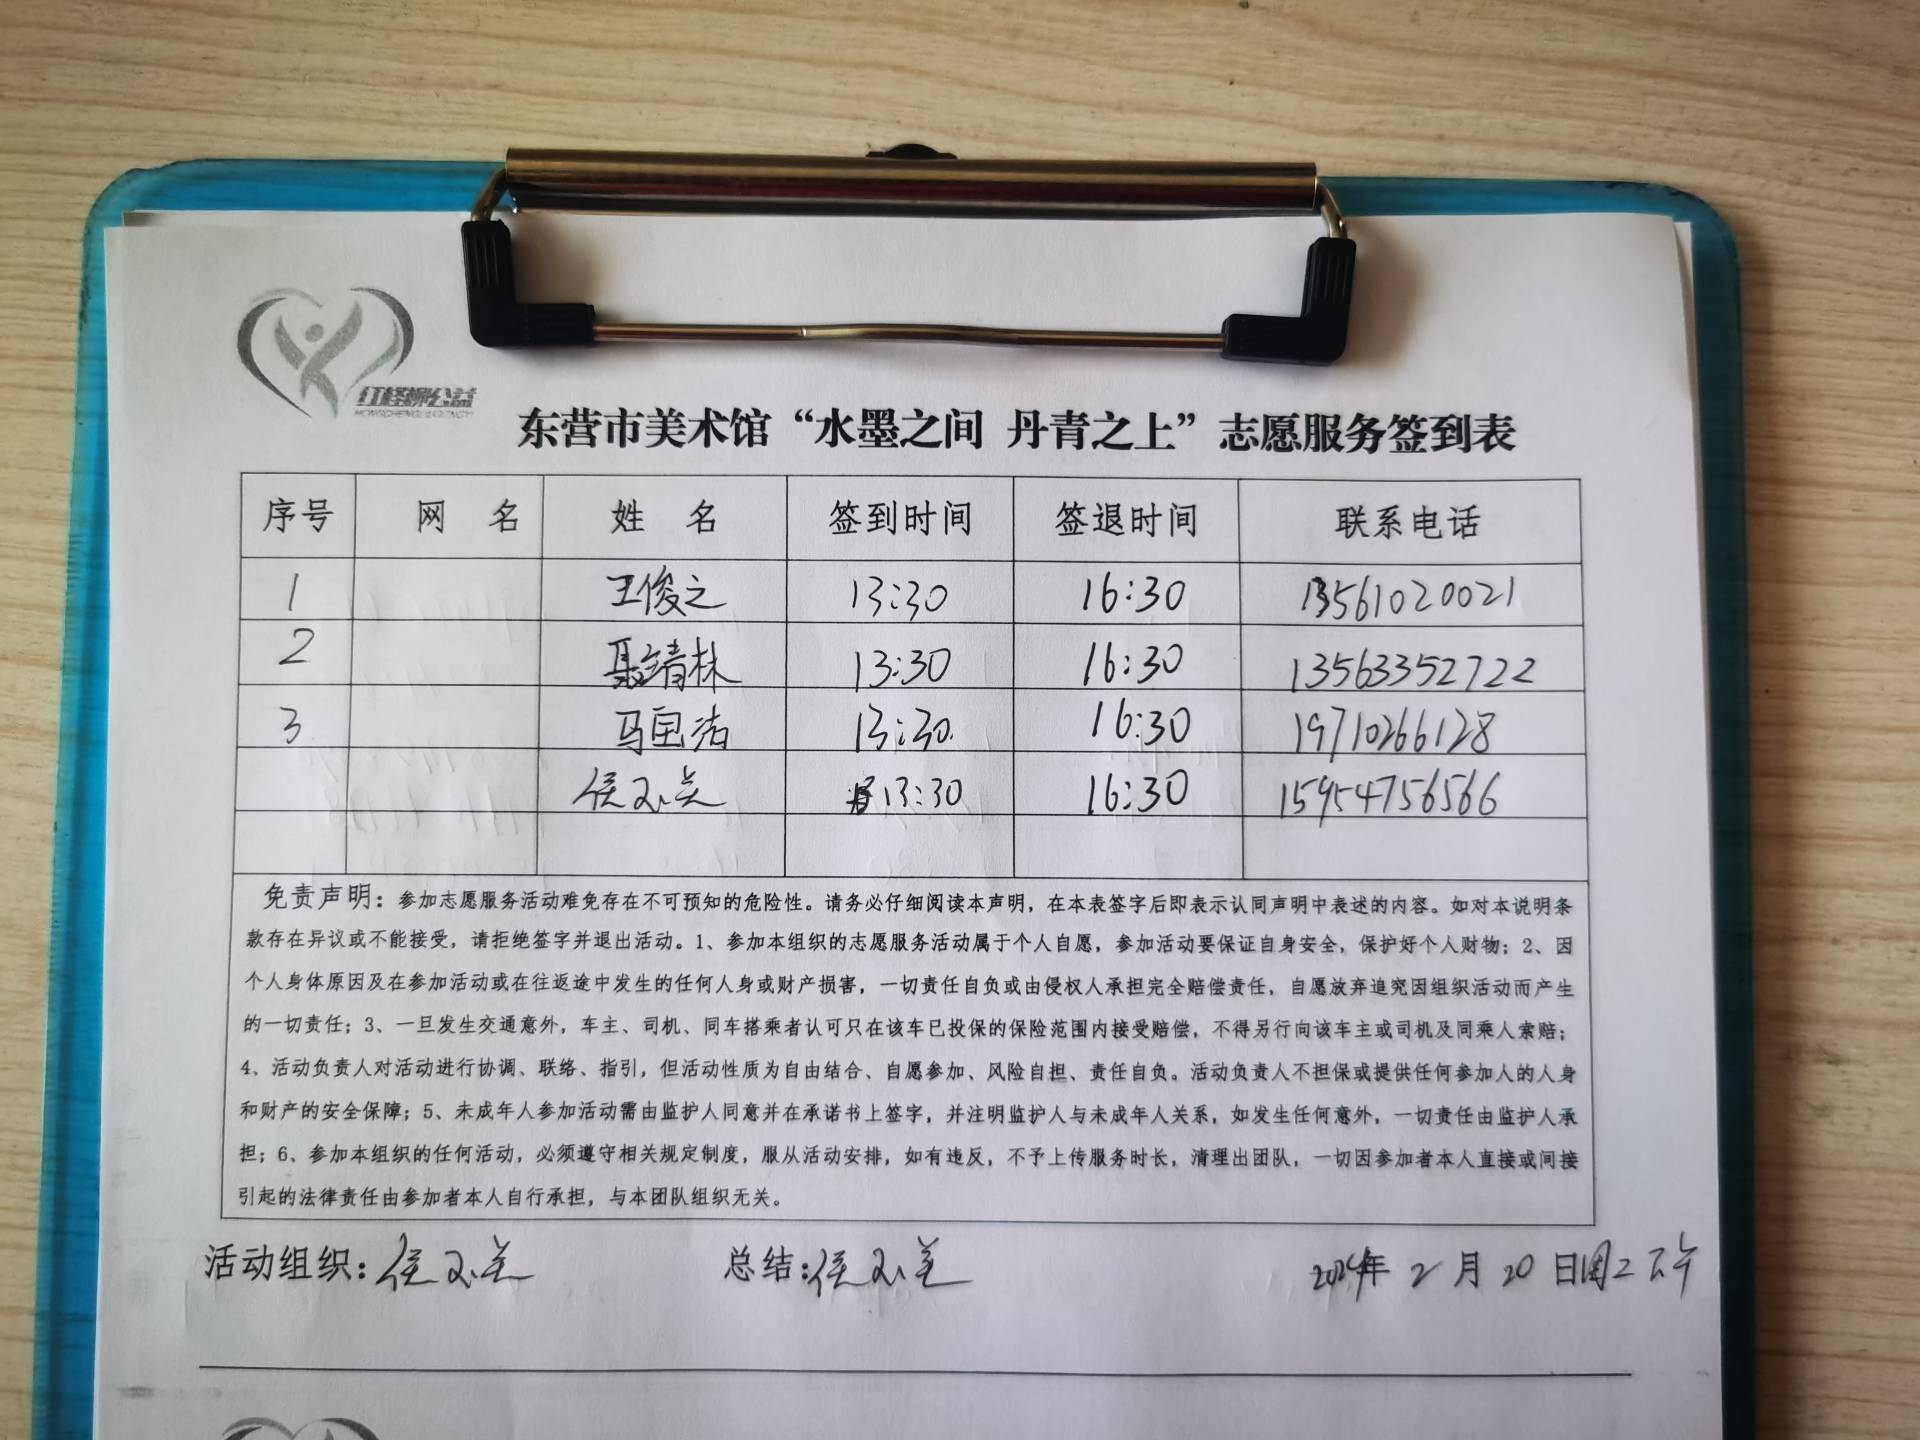 红柽柳公益
HONGCHENGLIUGONGYI
东营市美术馆“水墨之间 丹青之上”志愿服务签到表
序号 网 名 姓 名 签到时间 签退时间 联系电话
1 王俊之 13:30 16:30 13561020021
2 聂靖林 13:30 16:30 13563352722
3 马国洁 13:30 16:30 19710266128
侯玉美 13:30 16:30 15954756566
免责声明：参加志愿服务活动难免存在不可预知的危险性。请务必仔细阅读本声明，在本表签字后即表示认同声明中表述的内容。如对本说明条
款存在异议或不能接受，请拒绝签字并退出活动。1、参加本组织的志愿服务活动属于个人自愿，参加活动要保证自身安全，保护好个人财物；2、因
个人身体原因及在参加活动或在往返途中发生的任何人身或财产损害，一切责任自负或由侵权人承担完全赔偿责任，自愿放弃追究因组织活动而产生
的一切责任；3、一旦发生交通意外，车主、司机、同车搭乘者认可只在该车已投保的保险范围内接受赔偿，不得另行向该车主或司机及同乘人索赔；
4、活动负责人对活动进行协调、联络、指引，但活动性质为自由结合、自愿参加、风险自担、责任自负。活动负责人不担保或提供任何参加人的人身
和财产的安全保障；5、未成年人参加活动需由监护人同意并在承诺书上签字，并注明监护人与未成年人关系，如发生任何意外，一切责任由监护人承
担；6、参加本组织的任何活动，必须遵守相关规定制度，服从活动安排，如有违反，不予上传服务时长，清理出团队，一切因参加者本人直接或间接
引起的法律责任由参加者本人自行承担，与本团队组织无关。
活动组织：侯玉美 总结：侯玉美 2024年 2 月 20 日周二下午